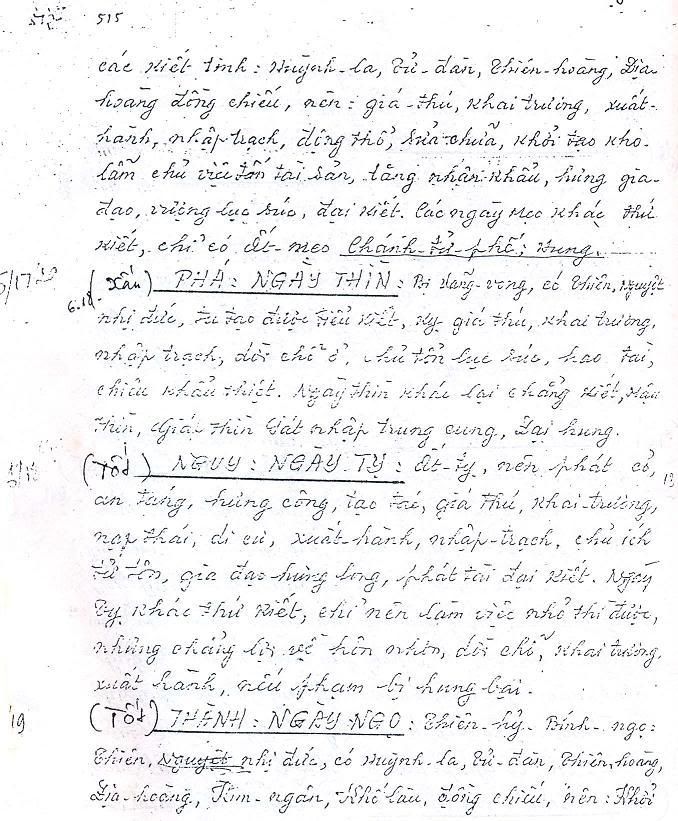 515
các kiết tinh: Huỳnh-la, Tử-đàn, Thiên-hoàng, Địa
hoàng đồng chiếu, nên: giá-thú, khai trương, xuất-
hành, nhập trạch, động thổ, sửa chữa, khởi tạo kho-
lẫm chủ việc tấn tài sản, tăng nhân khẩu, hưng gia-
đạo, vượng lục súc, đại kiết. Các ngày Mẹo khác thứ
kiết, chỉ có Ất-mẹo Chánh-tứ-phế: Hung.
(Xấu) PHÁ: NGÀY THÌN: Bị Vãng-vong, có Thiên, Nguyệt
nhị đức, tu tạo được tiểu kiết, kỵ giá thú, khai trương,
nhập trạch, dời chỗ ở, chủ tổn lục súc, hao tài,
chiêu khẩu thiệt. Ngày Thìn khác lại chẳng kiết, Mậu
Thìn, Giáp Thìn Sát nhập trung cung, Đại hung.
(Tốt) NGUY: NGÀY TỴ: Ất-tỵ, nên phát cỏ,
an táng, hưng công, tạo tác, giá thú, khai trương,
nạp thái, di cư, xuất-hành, nhập-trạch, chủ ích
tử tôn, gia đạo hưng long, phát tài đại kiết. Ngày
Tỵ khác thứ kiết, chỉ nên làm việc nhỏ thì được,
nhưng chẳng lợi về hôn nhơn, dời chỗ, khai trương,
xuất hành, nếu phạm bị hung bại.
19 (Tốt) THÀNH: NGÀY NGỌ: Thiên-hỷ. Bính-ngọ:
Thiên, Nguyệt nhị đức, có Huỳnh-la, Tử-đàn, Thiên, hoàng,
Địa-hoàng, Kim-ngân, Khố lâu, đồng chiếu, nên: Khởi